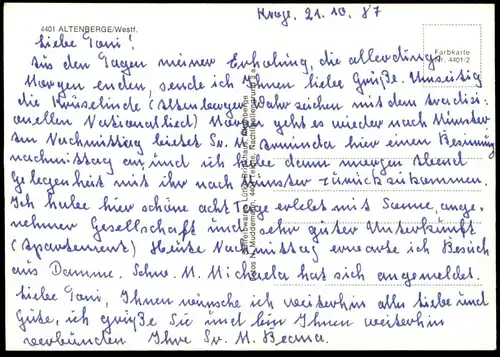 Kroge. 21.10.87
4401 ALTENBERGE/Westf.
Farbkarte
Nr. 4401/2
Liebe Toni!
Aus den Tagen meiner Erholung, die allerdings
Morgen enden, sende ich Ihnen liebe Grüße. Umseitig
die Krüselinde (Altenberger Wahrzeichen mit dem tradizi-
onellen Nationallied) Morgen geht es wieder nach Münster
am Nachmittag bietet Sr. M. hier einen Besinnung
nachmittag an, und ich habe dann morgen Abend
Gelegenheit mit ihr nach Münster zurückzukommen.
Ich habe hier schöne acht Tage erlebt mit Sonne, ange-
nehmer Gesellschaft und sehr guter Unterkunft
(Apartement) Heute Nachmittag erwarte ich Besuch
aus Damme. Schw. M. Michaela hat sich angemeldet.
Liebe Toni, Ihnen wünsche ich weiterhin alles Liebe und
Gute, ich grüße Sie und bin Ihnen weiterhin
verbunden Ihre Sr. M.